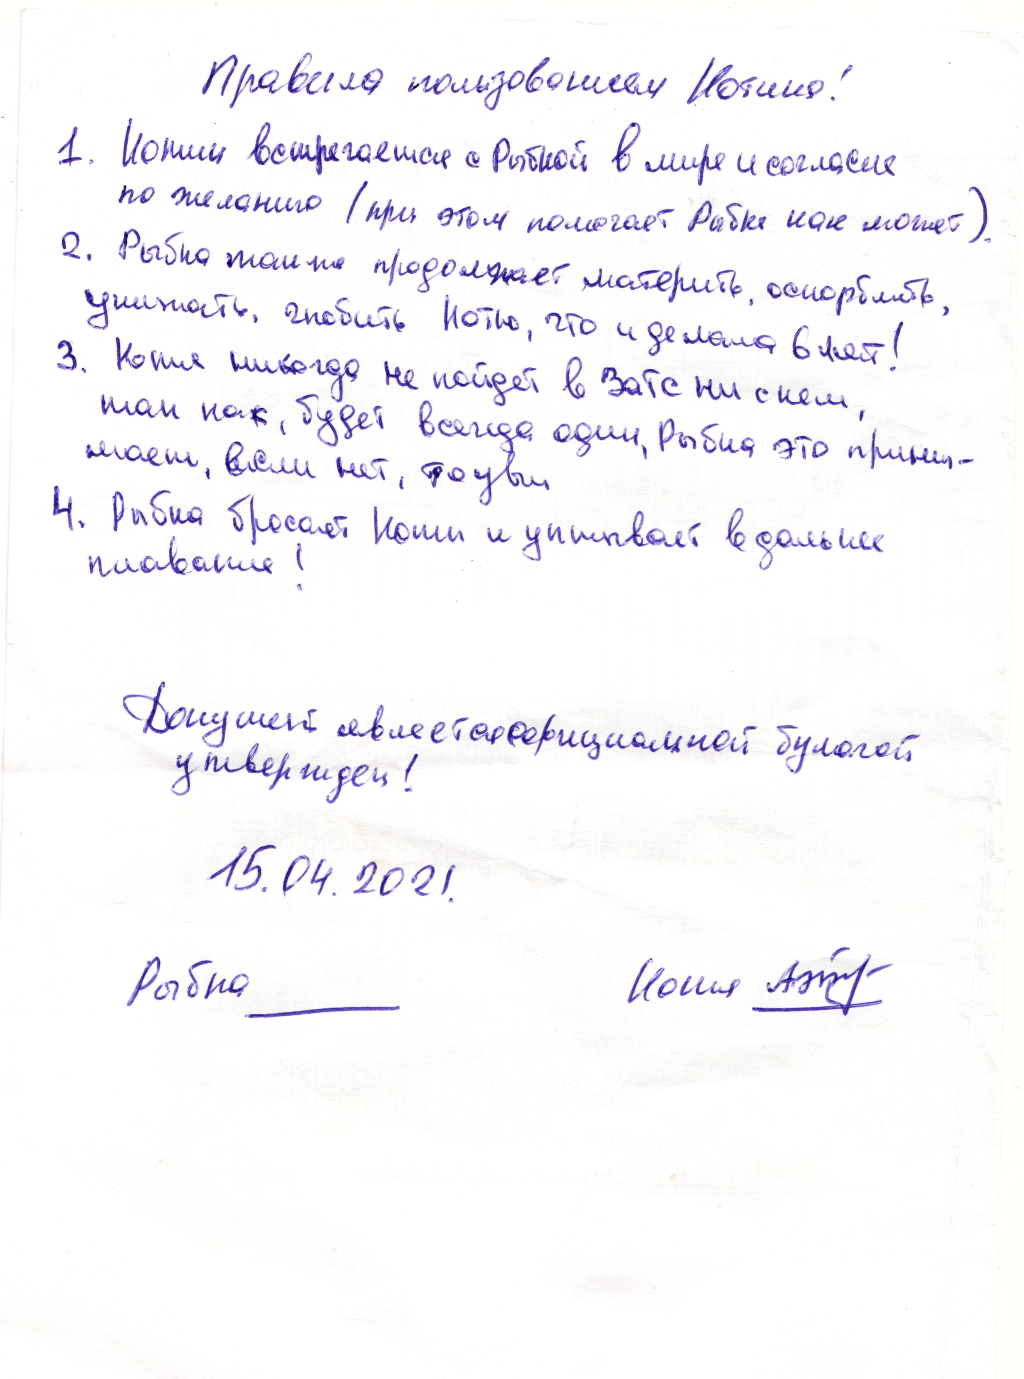 Правила пользованием Котика!
1. Котик встречается с Рыбкой в мире и согласие
по желанию (при этом помогает Рыбке как может).
2. Рыбка также продолжает материть, оскорблять,
унижать, гнобить Котю, что и делала 6 лет!
3. Котя никогда не пойдет в ЗАГС ни с кем,
так как, будет всегда один, Рыбка это прини-
мает, если нет, то увы
4. Рыбка бросает Котю и уплывает в дальнее
плавание!
Документ является официальной бумагой
утвержден!
15.04.2021.
Рыбка Котя